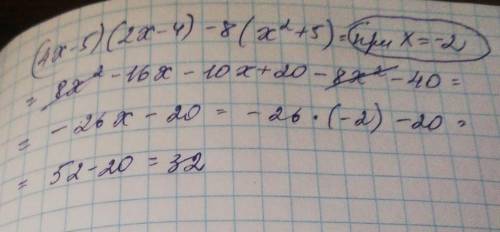 (4x-5)(2x-4) -8(x²+5)= при x=-2
= 8x² -16x -10x+20 -8x² -40 =
= -26x -20 = -26·(-2) -20 =
= 52-20 = 32